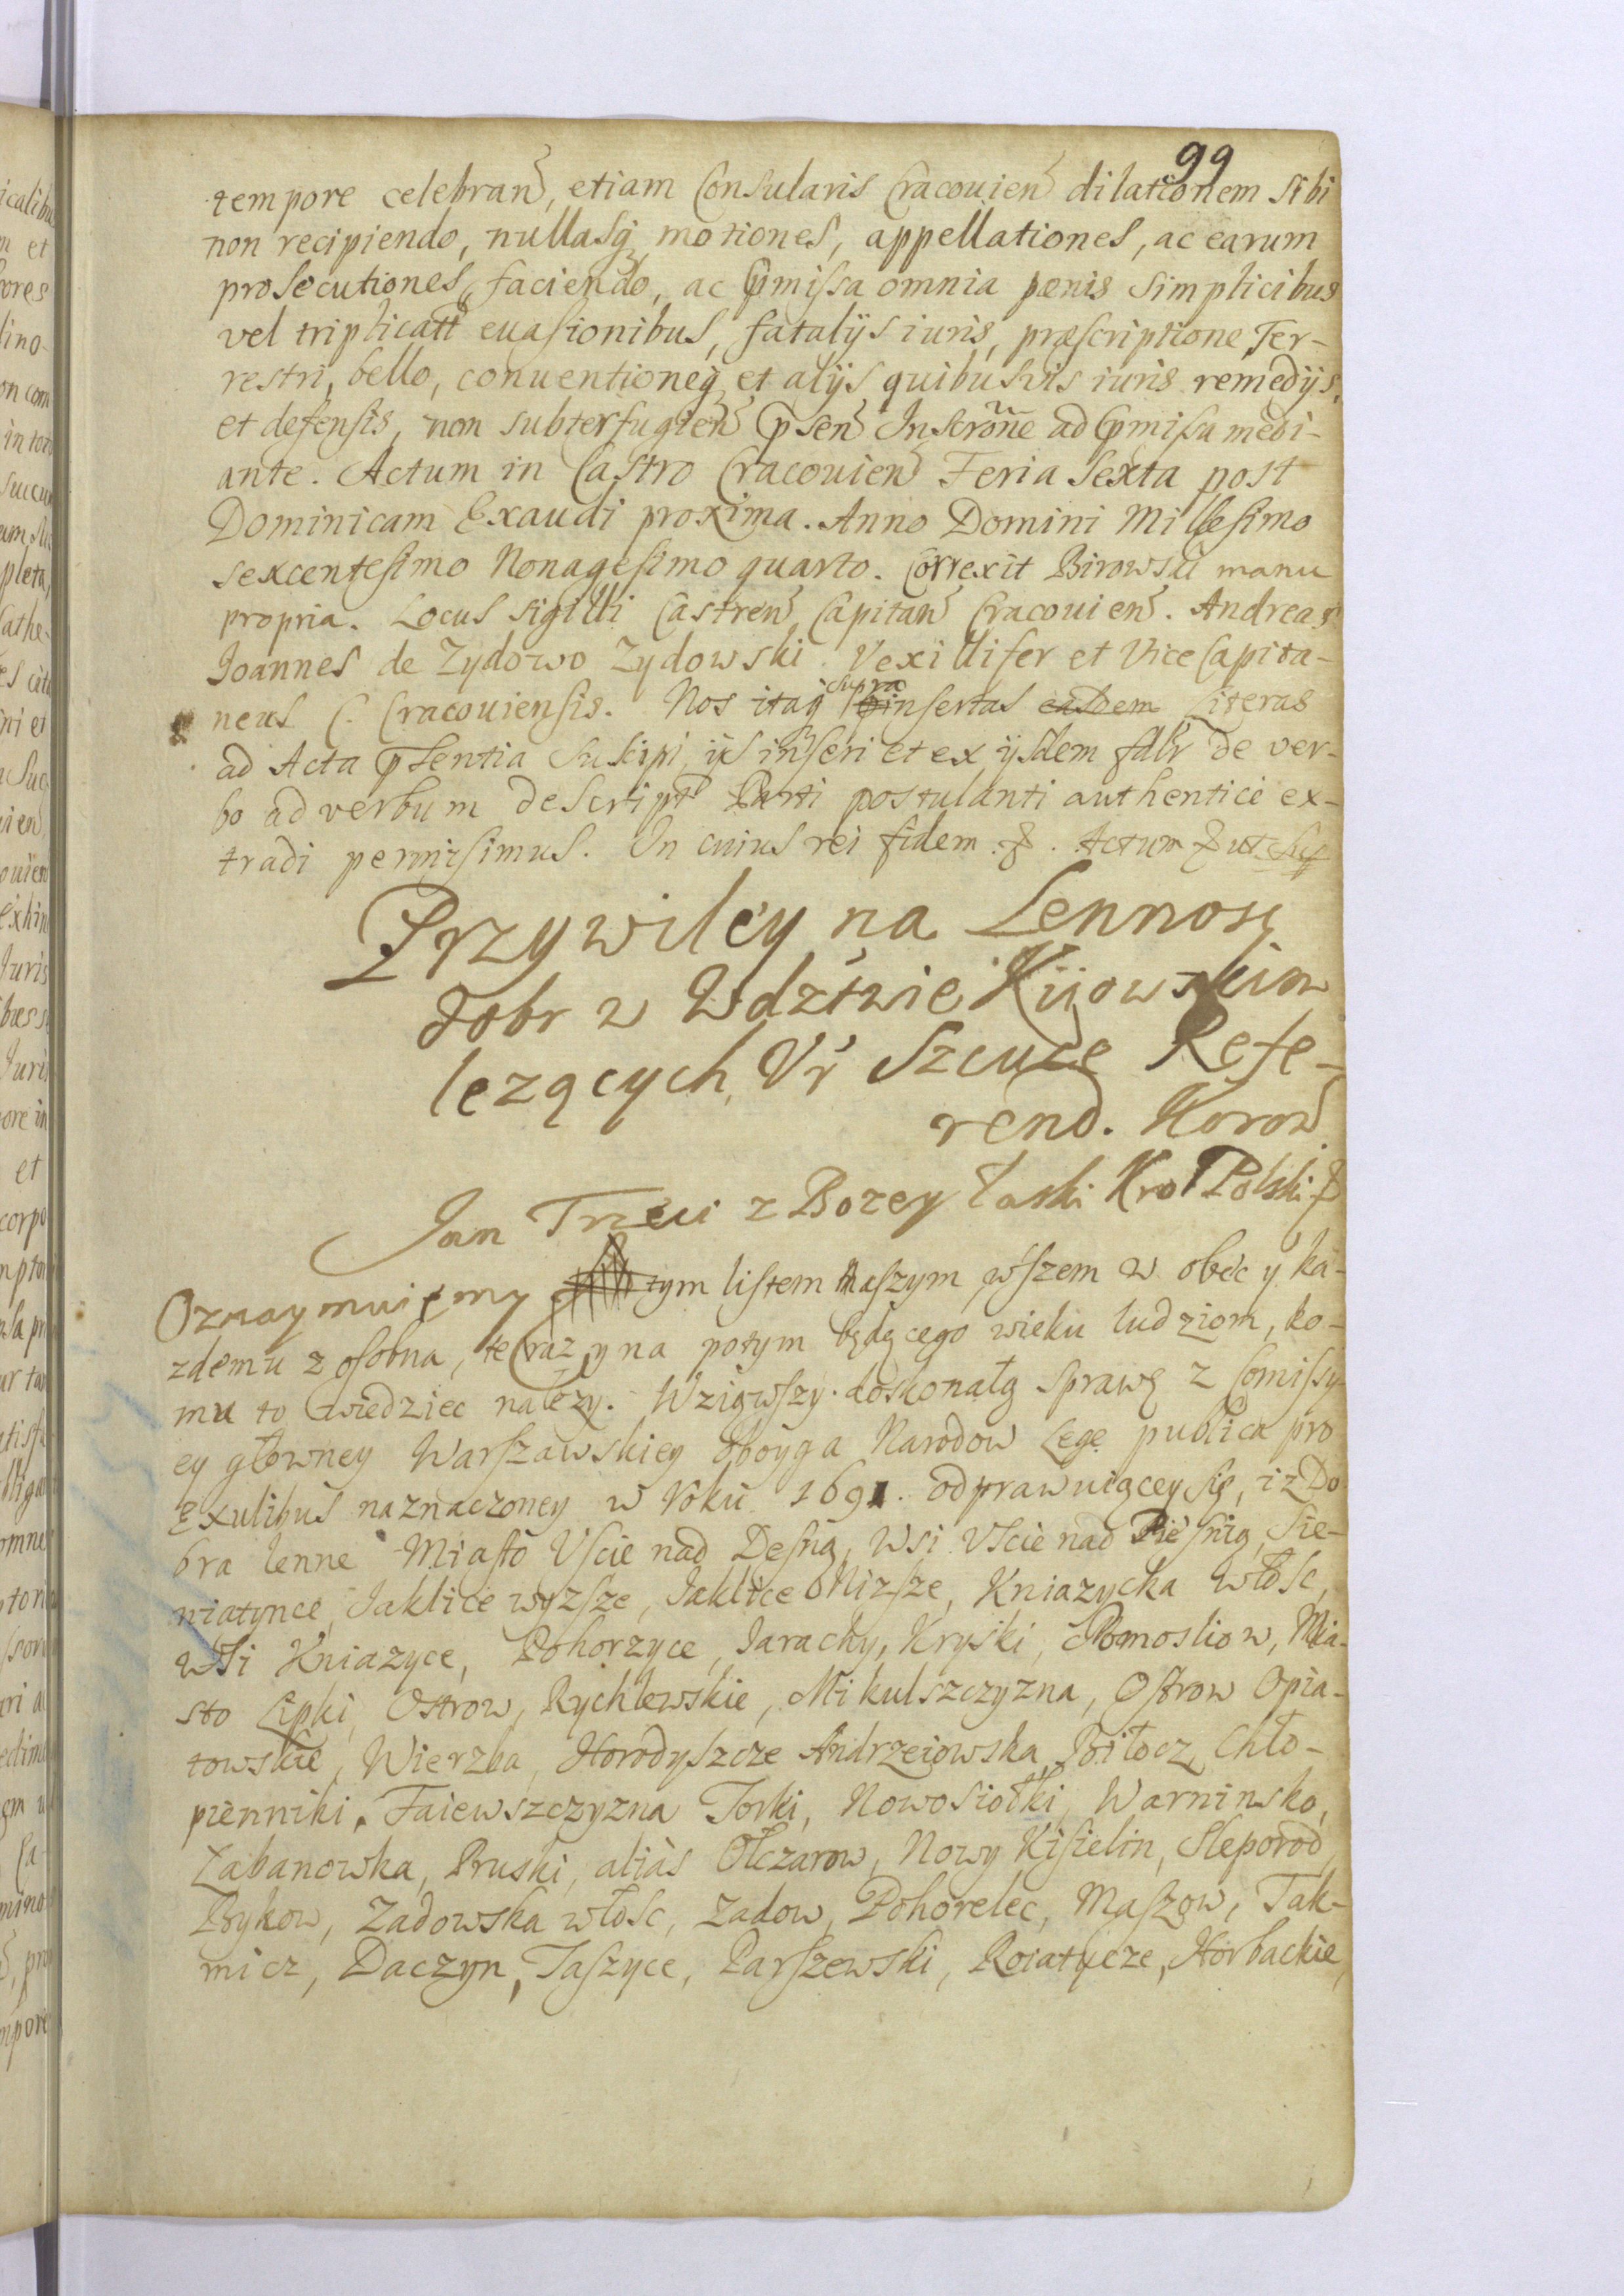 99
tempore celebran, etiam Consularis Cracouien dilationem sibi
non recipiendo, nullasq motiones, appellationes, ac earum
prosecutiones, faciendo, ac pmissa omnia pœnis simplicibus
vel triplicatt euasionibus, fatalijs iuris, præscriptione Ter-
restri, bello, conuentioneq et alijs quibusvis iuris remedijs,
et defensis, non subterfugien psen Inscrōne ad pmissa medi-
ante. Actum in Castro Cracouien Feria Sexta post
Dominicam Exaudi proxima. Anno Domini Millesimo
sexcentesimo Nonagesimo quarto. Correxit Birowski manu
propria. Locus sigilli Castren Capitan Cracouien. Andreas
Ioannes de Zydowo Zydowski Vexillifer et Vice Capita-
neus C. Cracouiensis. Nos itaq supra insertas easdem Literas
ad Acta psentia suscipi, ijs inseri et ex ijsdem fálr de ver-
bo ad verbum descript Parti postulanti authentice ex-
tradi permisimus. In cuius rei fidem &. Actum & ut sup
Przywiley na Lennosc
dobr w Wdztwie Kijowskim
lezących, Vr Szcuce Refe-
rend. Koron
Jan Trzeci z Bozey łaski Krol Polski &
Oznaymuiemy tym listem Naszym, wszem w obec y ka-
zdemu z osobna, teraz y na potym będącego wieku ludziom, ko-
mu to wiedziec nalezy. Wziąwszy doskonałą sprawę z Comissy-
ey głowney Warszawskiey oboyga Narodow Lege publica pro
Exulibus naznaczoney w Roku 1691. odprawuiącey się, iz Do-
bra lenne Miasto Uscie nad Desną, Wsi Uscie nad Piesnią, Sie-
niatynce, Jaklice wyzsze, Jaklice Nizsze, Kniazycka Włosc,
Wsi Kniazyce, Pohorzyce, Jarachy, Kryski, Pomosliow, Mia-
sto Lipki, Ostrow, Rychlewskie, Mikulszczyzna, Ostrow Opia-
towskie, Wierzba, Horodyszcze Andrzeiowska, Poitocz, Chło-
pienniki, Faiewszczyzna Torki, Nowosiołki, Warninsko,
Labanowka, Pruski, alias Olczarow, Nowy Kisielin, Sleporod
Bykow, Zadowska włosc, Zadow, Pohorelec, Maszow, Tak-
micz, Daczyn, Taszyce, Parszewski, Roiatycze, Horbackie,